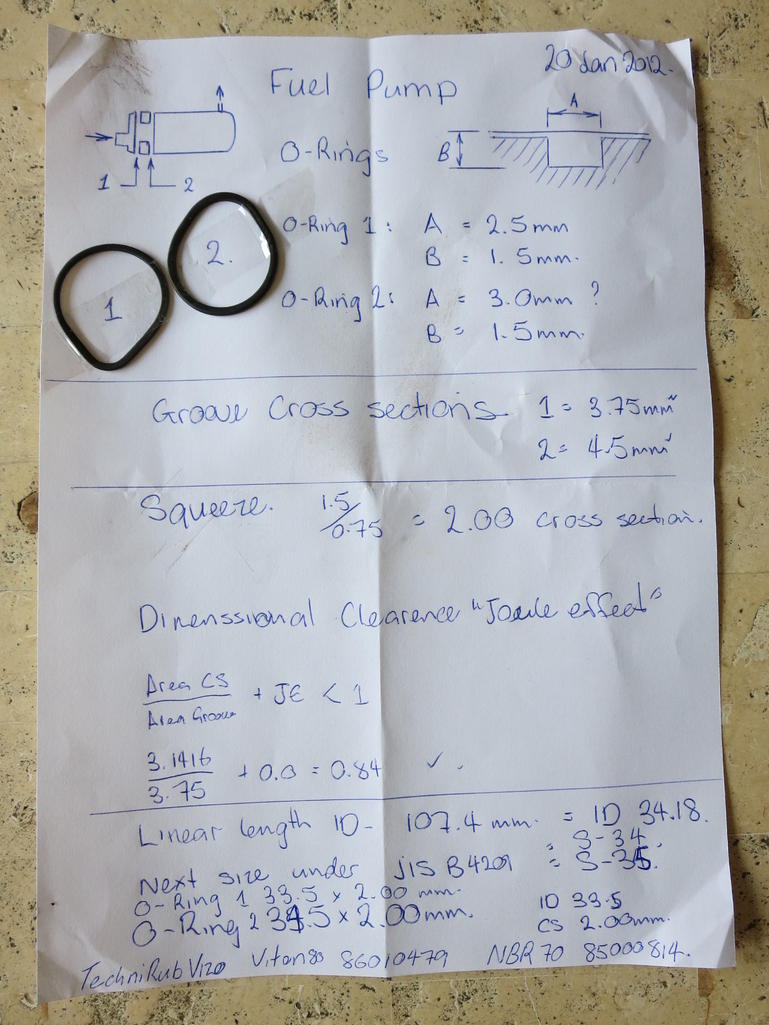 20 Jan 2012.
Fuel Pump
A
O-Rings
B
1
2
O-Ring 1: A = 2.5mm
B = 1.5mm.
O-Ring 2: A = 3.0mm ?
B = 1.5mm.
1
2.
Groove Cross sections 1 = 3.75mm"
2 = 4.5mm'
Squeeze. 1.5/0.75 = 2.00 cross section.
Dimenssional Clearence "Joule effect"
Area CS
Area Groove
+ JE < 1
3.1416
3.75
+ 0.0 = 0.84 ✓.
Linear length ID - 107.4 mm. = ID 34.18.
= S-34.
Next size under JIS B4209 = S-35.
O-Ring 1 33.5 x 2.00 mm. ID 33.5
O-Ring 2 34.5 x 2.00mm. CS 2.00mm.
TechniRub Viton 80 86010479 NBR 70 85000814.